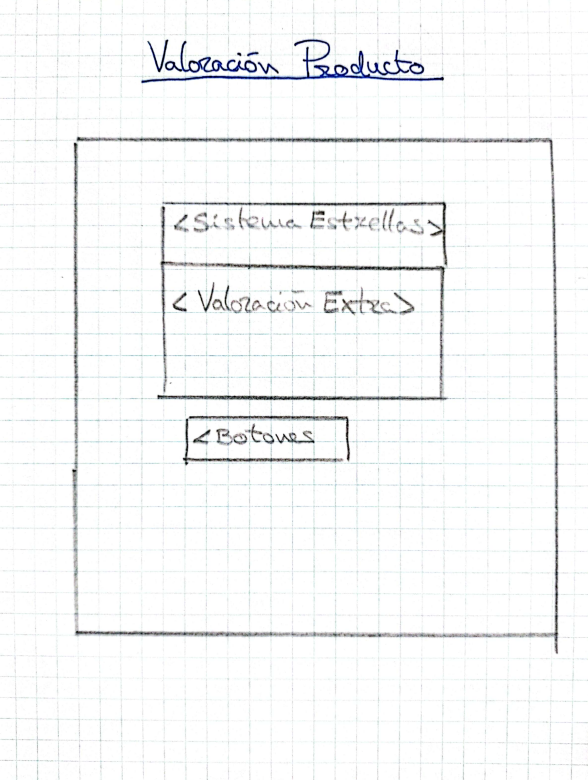 Valoración Producto
<Sistema Estrellas>
<Valoración Extra>
<Botones